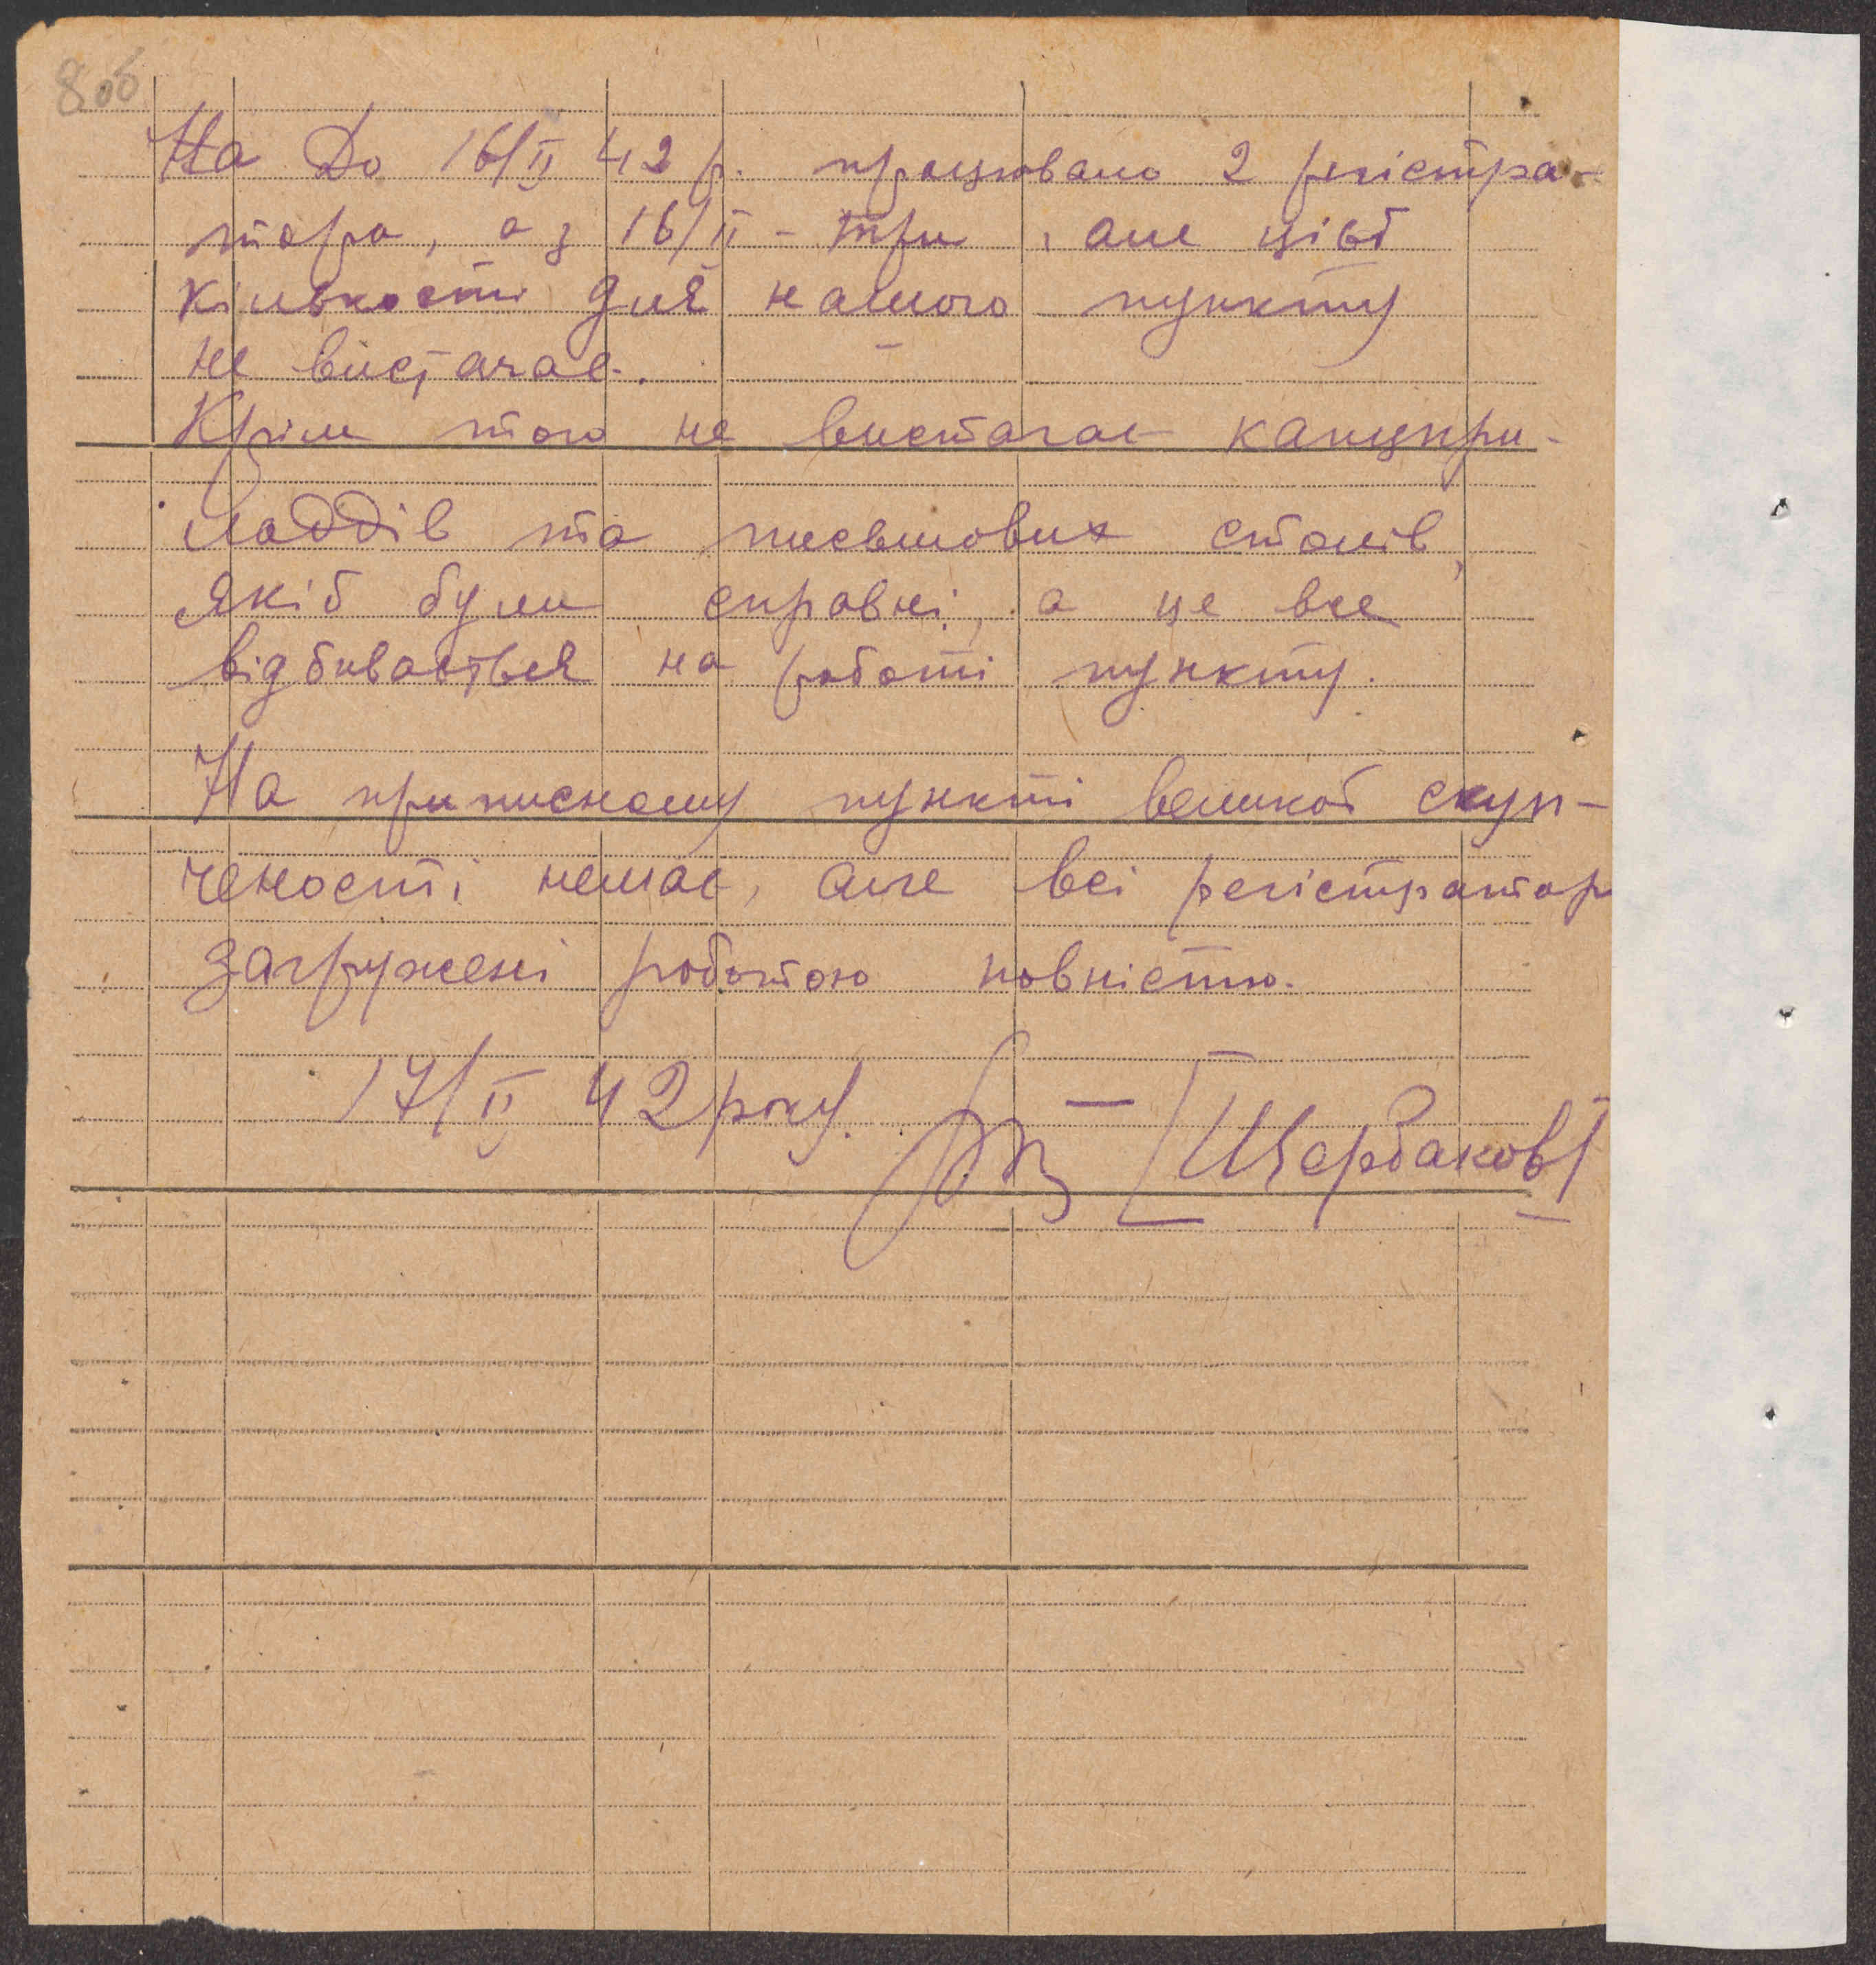 8 об
На До 16/II 42 р. працювало 2 регістра-
тора, а з 16/II - три, але цієї
кількости для нашого пункту
не вистачає.
Крім того не вистачає канцпри-
ладдів та письмових столів,
якіб були справні, а це все
відбивається на роботі пункту.
На приписному пункті великої скуп-
чености немає, але всі регістратор
загружені роботою повністю.
17/II 42 року. [Щербаков]